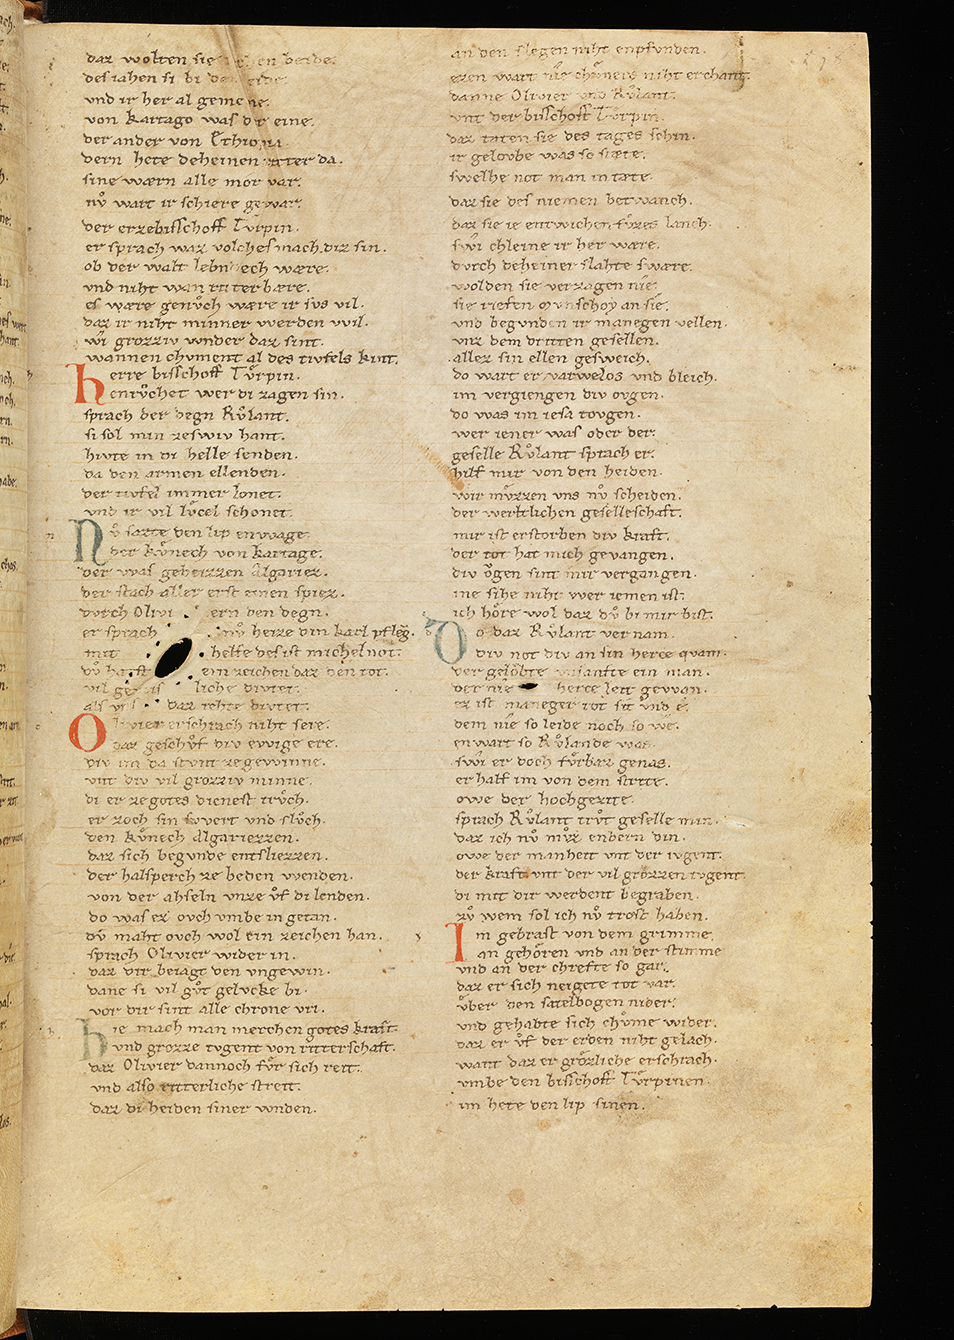 daz wolten sie beide.
des iahen si bi
vnd ir her al gemeine.
von Kartago was der eine.
der ander von Ethiopia.
dern hete deheinen ritter da.
sine wærn alle mor var.
nv̊ wart ir schiere gewar.
der erzebisschoff Tvrpin.
er sprach waz volches mach diz sin.
ob der walt lebntech wære.
vnd niht wan ritter bære.
es wære genv̊ch wære ir svs vil.
daz ir niht minner werden wil.
wi grozziv wnder daz sint.
wannen chvment al des tivfels kint.
herre bisschoff Tv̊rpin.
enrv̊chet wer di zagen sin.
sprach der degn Rv̊lant.
si sol min zeswiv hant.
hivte in di helle senden.
da den armen ellenden.
der tivfel immer lonet.
vnd ir vil lv̊cel schonet.
Nv̊ sazte den lip enwage.
der kv̊nech von kartage.
der was geheizzen Algariez.
der stach aller erst einen spiez.
dvrch Olivi ern den degn.
er sprach nv̊ heize din karl pfleg̅.
mit helfe des ist michel not.
dv̊ hast ein zeichen daz den tot.
vil liche divtet.
als daz rehte divtet.
Olivier erschrach niht sere.
daz geschv̊f div ewige ere.
div im da stvnt zegewinne.
vnt div vil grozziv minne.
di er ze gotes dienest trv̊ch.
er zoch sin swert vnd slv̊ch.
den kv̊nech Algariezzen.
daz sich begvnde entsliezzen.
der halsperch ze beden wenden.
von der ahseln vnze v̊f di lenden.
do was ez ovch vmbe in getan.
dv̊ maht ovch wol ein zeichen han.
sprach Olivier wider in.
daz dir beiagt den vngewin.
dane si vil gv̊t gelvcke bi.
vor dir sint alle chrone vri.
hie mach man merchen gotes kraft.
vnd grozze tvgent von ritterschaft.
daz Olivier dannoch fv̊r sich reit.
vnd also ritterliche streit.
daz di heiden siner wnden.
an den slegen niht enpfvnden.
ezen wart nie chv̊ners niht erchant.
danne Olivier vnd Rv̊lant.
vnt der bisschoff Tv̊rpin.
daz taten sie des tages schin.
ir geloube was so stæte.
swelhe not man in tæte.
daz sie des niemen betwanch.
daz sie ie entwichen fv̊zes lanch.
swi chleine ir her wære.
dvrch deheiner slahte swære.
wolden sie verzagen nie.
sie riefen Mvnschoy an sie.
vnd begvnden ir manegen vellen.
vnz dem dritten gesellen.
allez sin ellen gesweich.
do wart er varwelos vnd bleich.
im vergiengen div ovgen.
do was im iesa tovgen.
wer iener was oder der.
geselle Rv̊lant sprach er.
hilf mir von den heiden.
wir mv̊zzen vns nv̊ scheiden.
der werltlichen geselleschaft.
mir ist erstorben div kraft.
der tot hat mich gevangen.
div o̊gen sint mir vergangen.
ine sihe niht wer iemen ist.
ich hőre wol daz dv̊ bi mir bist.
Do daz Rv̊lant vernam.
div not div an sin herce quam.
der gelőbte vnsanfte ein man.
der nie herce leit gewan.
ez ist maneger tot sit vnd e.
dem nie so leide noch so we.
enwart so Rv̊lande was.
swi er doch fv̊rbaz genas.
er half im von dem strite.
owe der hochgezite.
sprach Rv̊lant trv̊t geselle min.
daz ich nv̊ mv̊z enbern din.
owe der manheit vnt der ivgent.
der kraft vnt der vil grőzzen tvgent.
di mit dir werdent begraben.
zv̊ wem sol ich nv̊ trost haben.
Im gebrast von dem grimme.
an gehőren vnd an der stimme
vnd an der chrefte so gar.
daz er sich neigete tot var.
v̊ber den satelbogen nider.
vnd gehabte sich chv̊me wider.
daz er v̊f der erden niht gelach.
want daz er grőzliche erschrach.
vmbe den bisschoff Tv̊rpinen.
im hete den lip sinen.